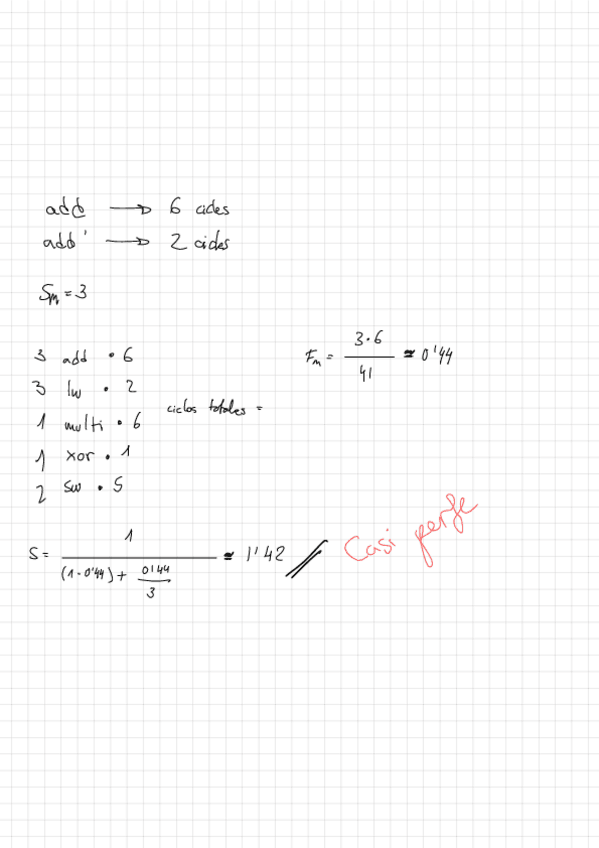 add → 6 cicles
add' → 2 cicles
Sm = 3
3 add · 6
3 lw · 2
1 multi · 6
1 xor · 1
2 sw · 5
ciclos totales =
Fm = 3·6 / 41 ≃ 0'44
S = 1 / ((1-0'44) + 0'44/3) ≃ 1'42 //
Casi perfe